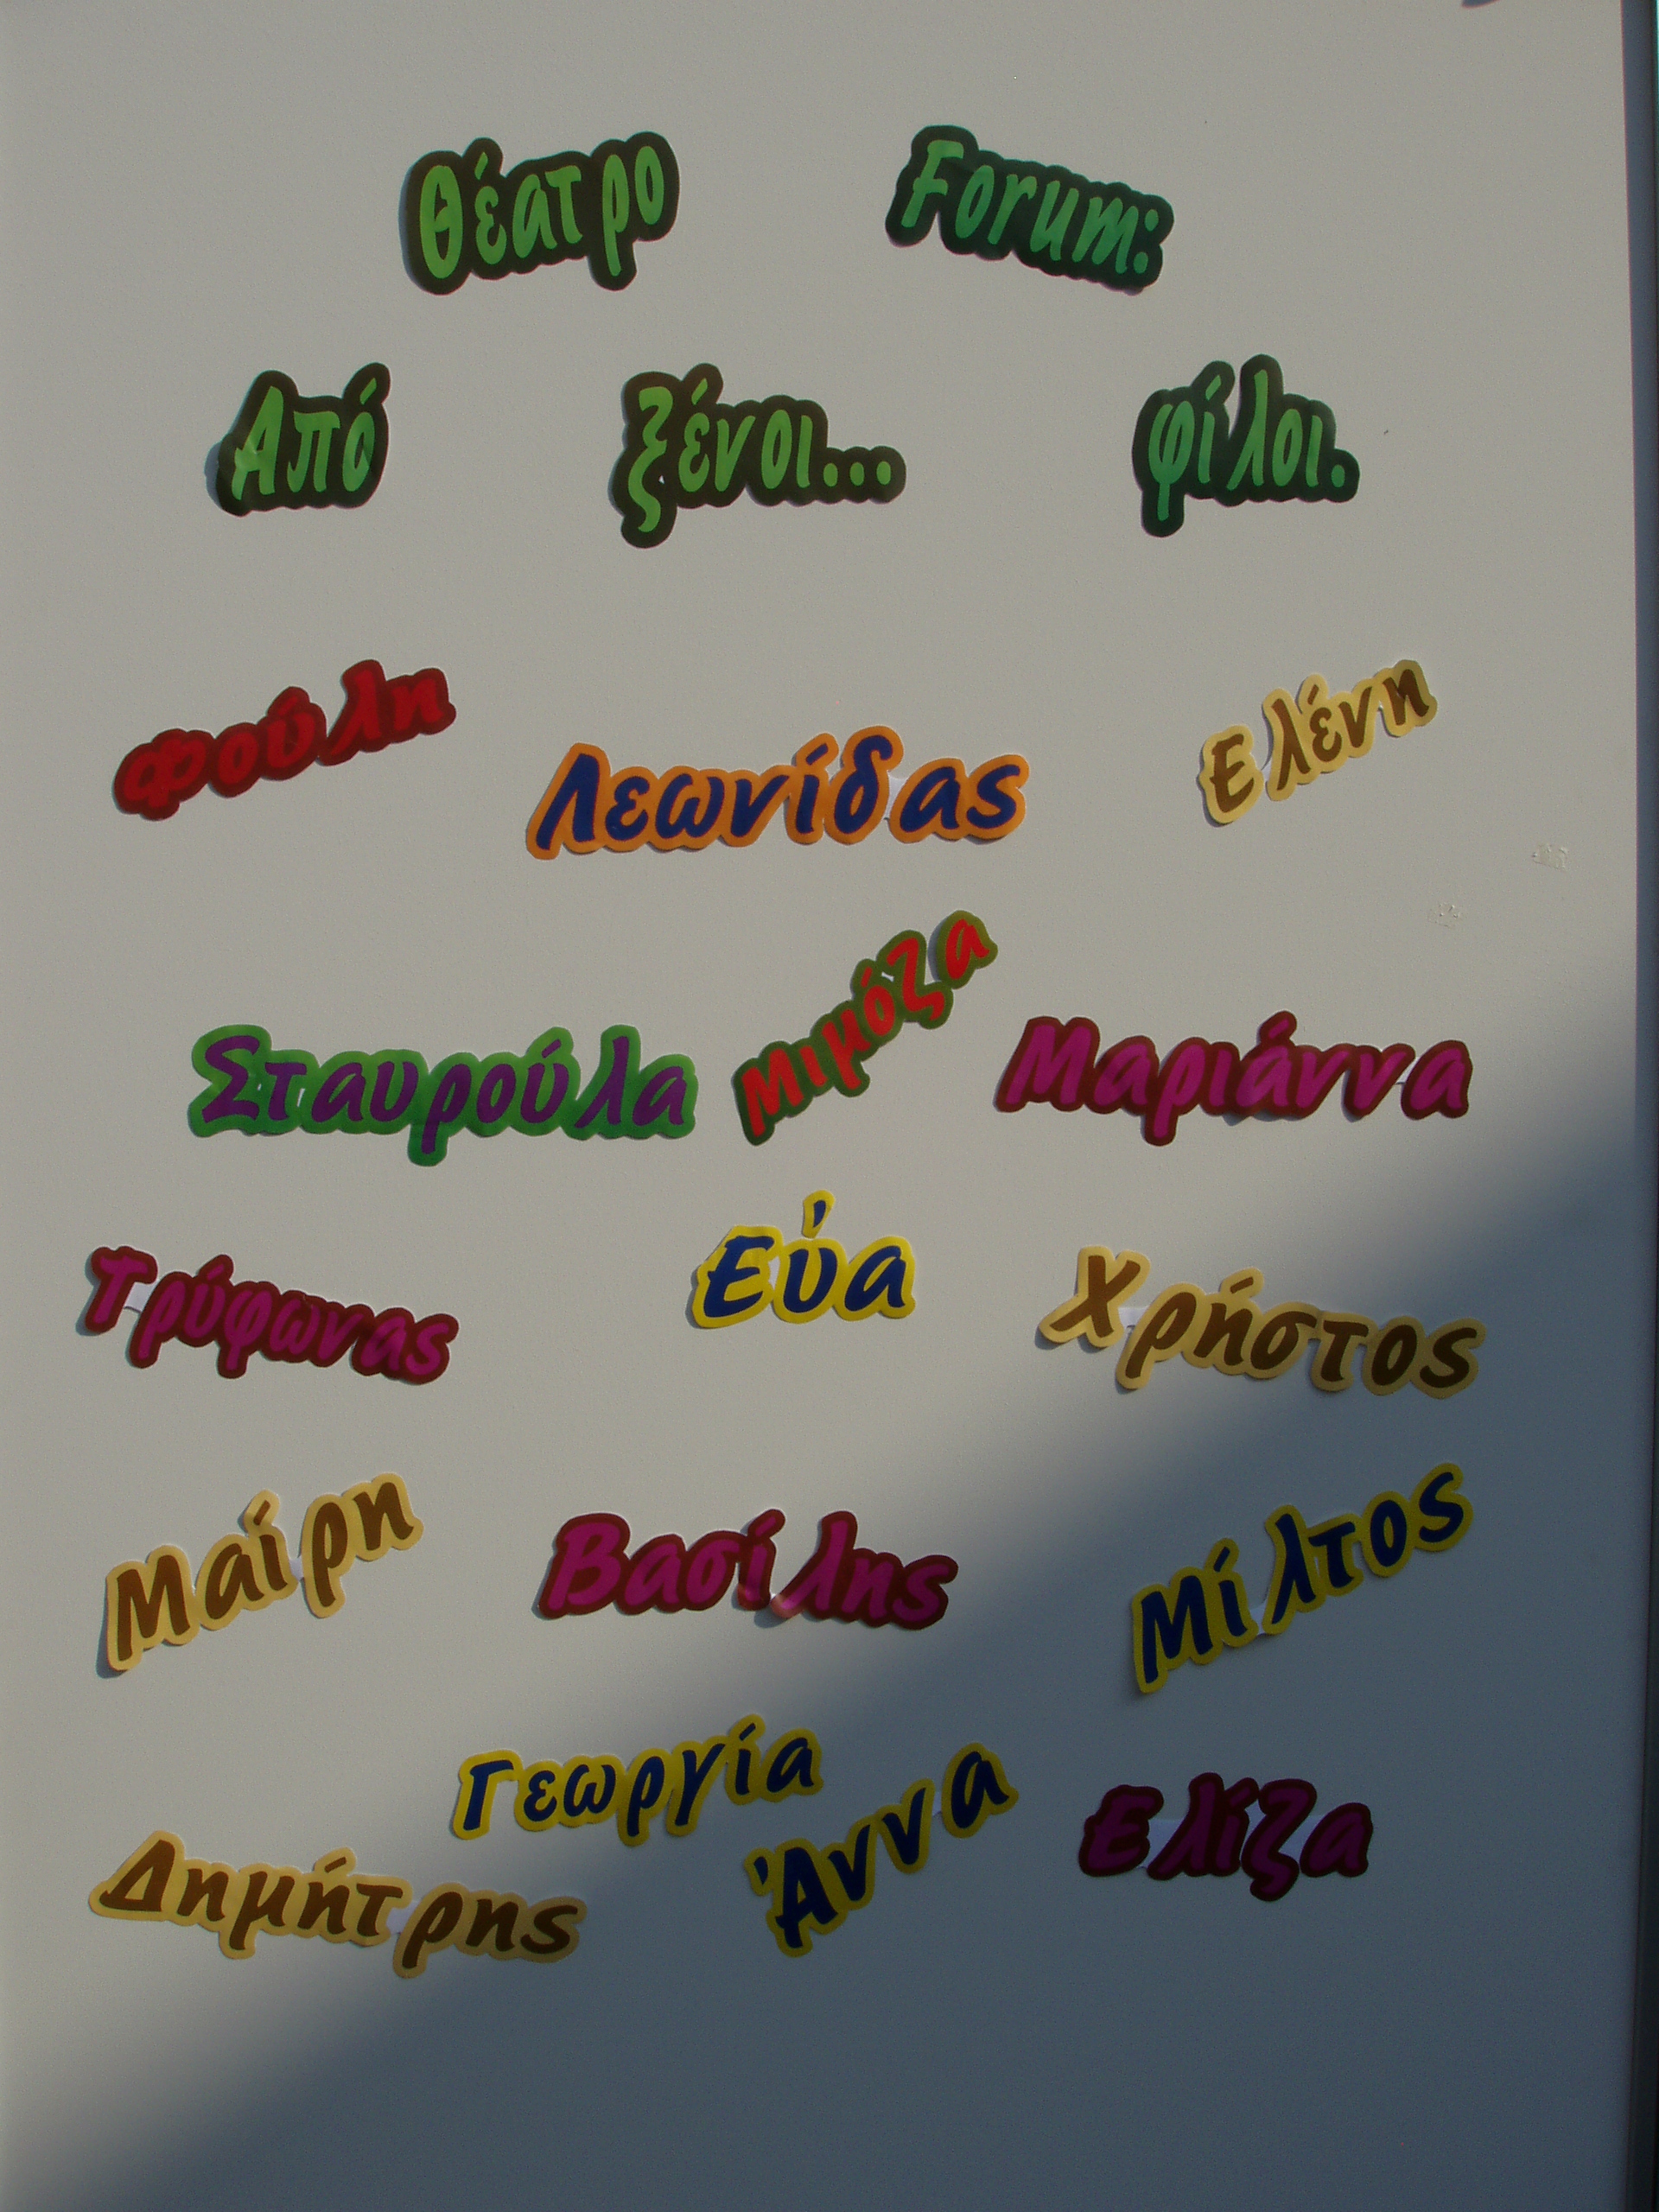 Θέατρο Forum:
Από ξένοι... φίλοι.
Φούλη Λεωνίδας Ελένη
Σταυρούλα Μιμόζα Μαριάννα
Τρύφωνας Εύα Χρήστος
Μαίρη Βασίλης Μίλτος
Γεωργία Άννα Ελίζα
Δημήτρης